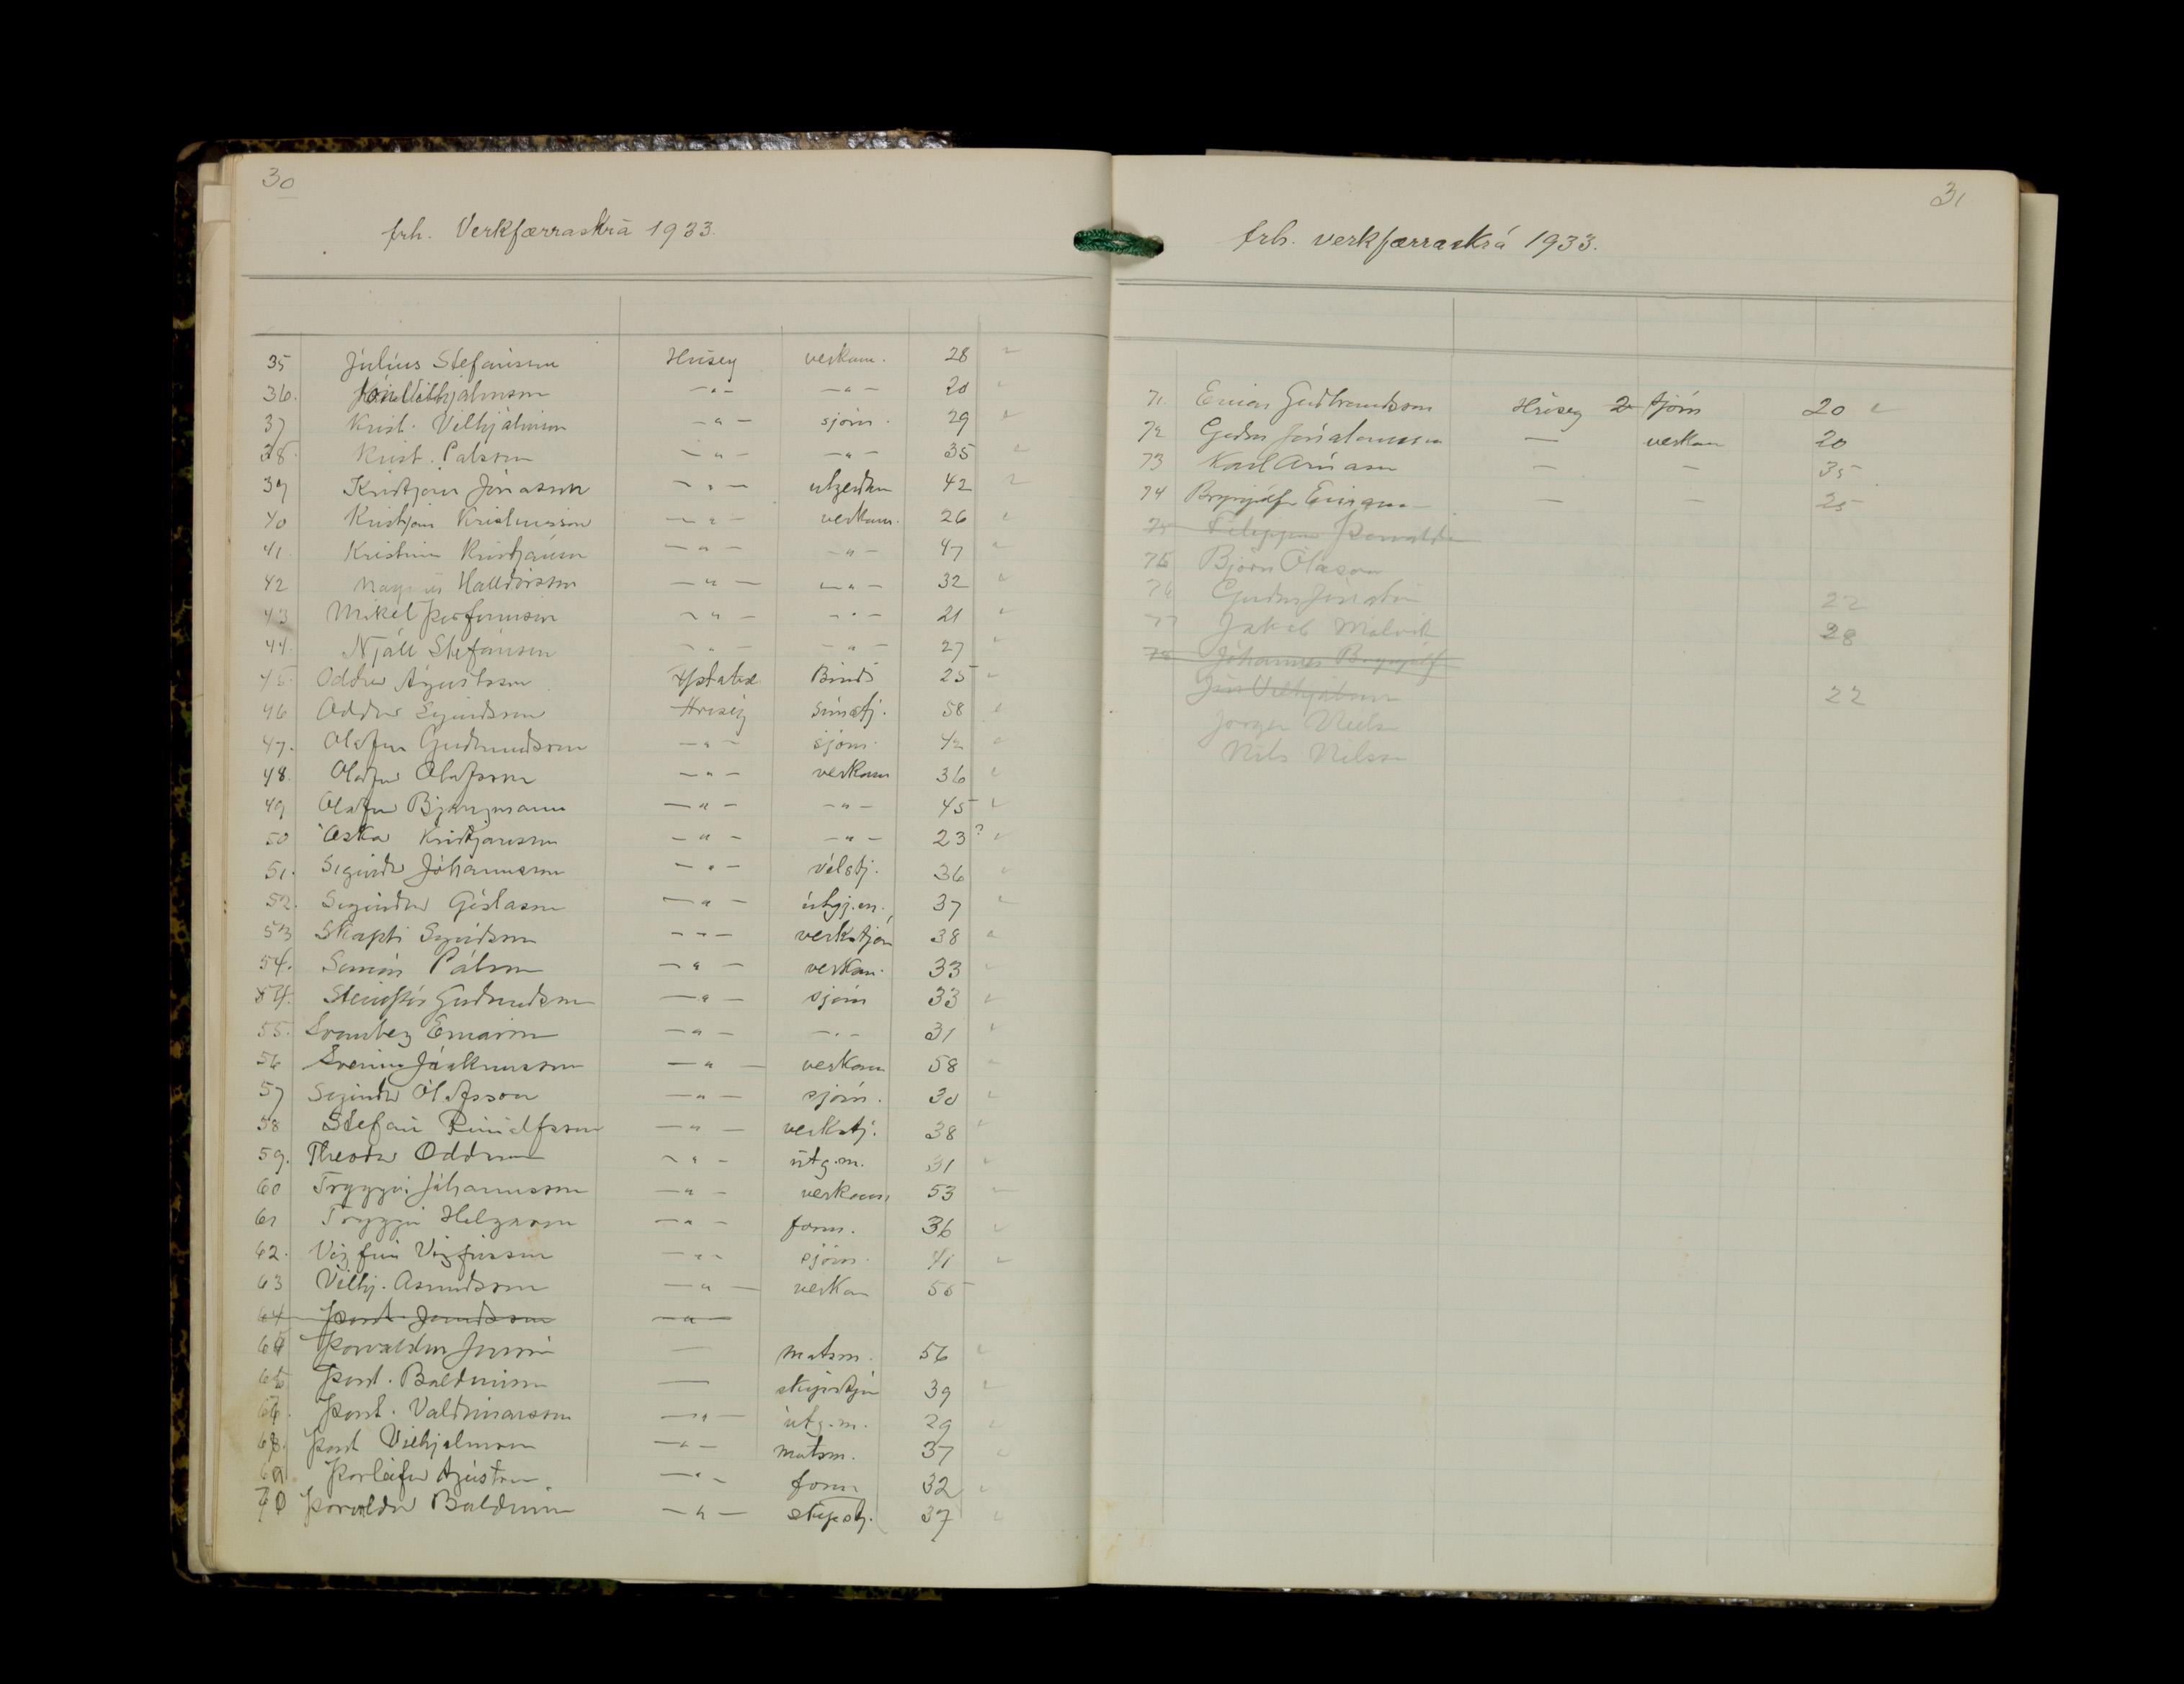 30
frh. Verkfærraskrá 1933.
35 Júlíus Stefánsson Hrísey verkam. 28
36. Jón Vilhjálmsson —„— —„— 20
37 Krist. Vilhjálmsson —„— sjóm. 29
38. Krist. Pálsson —„— —„— 35
39 Kristjann Jónasson —„— útgerðm 42
40 Kristján Kristinsson —„— verkam. 26
41. Kristinn Kristjánsson —„— —„— 47
42 Magnús Halldórsson —„— —„— 32
43 Mikel Þorfinnsson —„— —„— 21
44. Njáll Stefánsson —„— —„— 27
45. Oddur Ágústsson Bóndi 25
46 Oddur Sigurðsson Hrísey símstj. 58
47. Olafur Guðmundsson —„— sjóm. 42
48. Olafur Olafsson —„— verkam 36
49 Olafur Bjargmann —„— —„— 45
50 Óska Kristjánsson —„— —„— 23?
51. Sigurður Jóhannsson —„— vélstj. 36
52. Sigurður Gíslason —„— útgj.m. 37
53 Skapti Sigurðsson —„— verkstjóri 38
54. Símon Pálsson —„— verkam. 33
54. Steinþór Guðmundsson —„— sjóm 33
55. Svanberg Einarsson —„— —„— 31
56 —„— verkam 58
57 Sigurður Ólafsson —„— sjóm. 30
58 Stefán Rúnólfsson —„— verkstj. 38
59. Theodor Oddsson —„— útg.m. 31
60 Tryggvi Jóhannsson —„— verkam, 53
61 Tryggvi Helgason —„— form. 36
62. Vigfús Vigfússon —„— sjóm. 41
63 Vilhj. Asmundsson —„— verkam 55
64 Þorst. —„—
64 Þorvaldur — matsm. 56
65 Þorst. Baldvinsson — 39
66. Þorst. Valdimarsson —„— útg.m. 29
68. Þorst Vilhjálmsson —„— matsm. 37
69 Þorleifur Ágústsson —„— form 32
70 Þorvaldur Baldvinsson —„— skipstj. 37
31
frh. verkfærraskrá 1933.
71. Einar Guðbrandsson Hrísey sjóm 20
72 Guðm Jónatansson — verkam 20
73 Karl Árnason — — 35
74 Brynjólfur Einarsson — — 25
75 Filippus Þorvaldss
75 Björn Ólason
76 Guðm Jónatan 22
77 Jakob 28
78 Jóhannes Brynjólf
Jón Vilhjálmsson 22
Jörgen Niels
Nils Nilsson